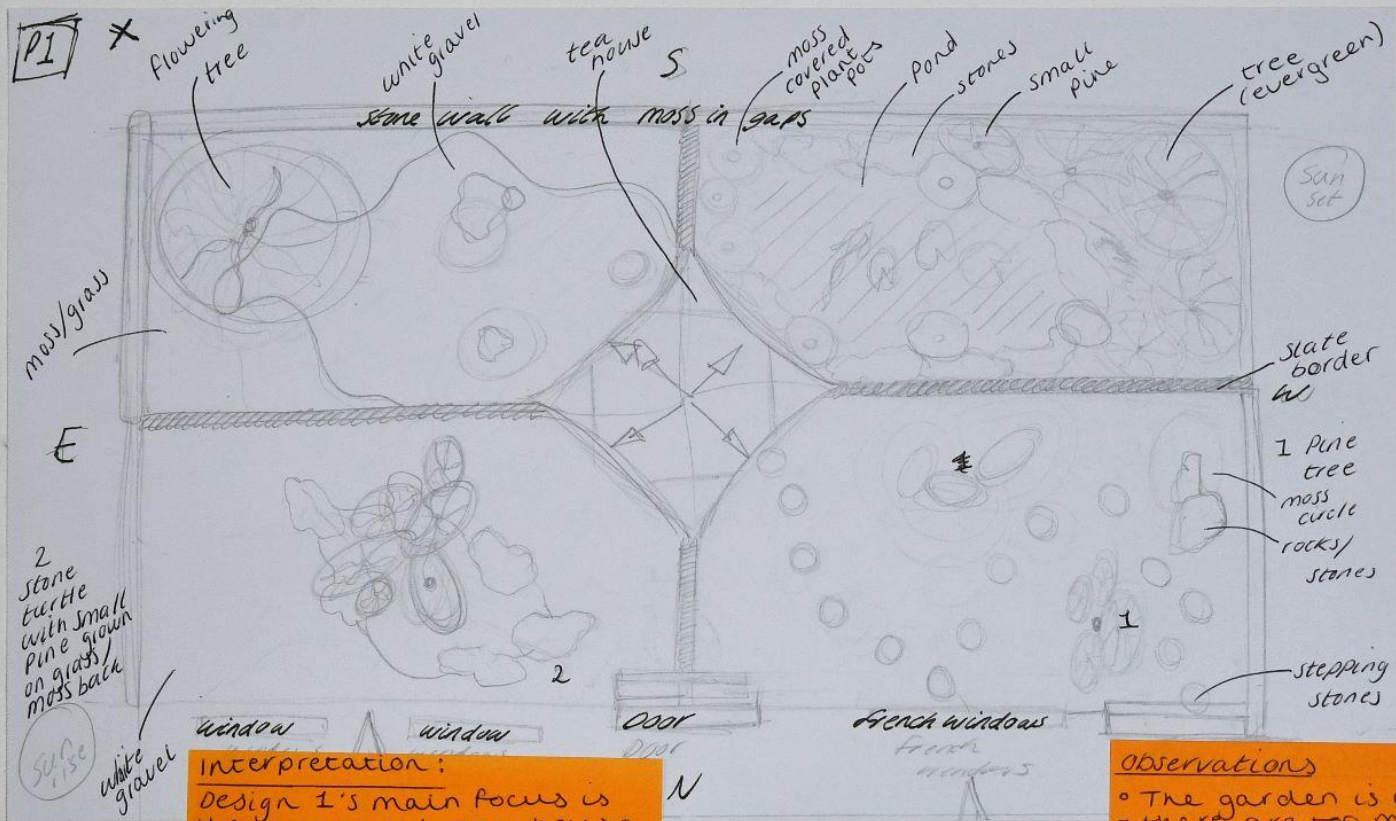 P1
X
flowering
tree
white
gravel
tea
house
S
moss
covered
plant
pots
Pond
stones
small
pine
tree
(evergreen)
stone wall with moss in gaps
sun
set
moss/grass
slate
border
W
E
1 Pine
tree
moss
circle
rocks/
stones
2
stone
turtle
with small
pine grown
on grass/
moss back
1
2
stepping
stones
window
window
Door
french windows
Door
french
windows
sun
rise
white
gravel
N
interpretation:
Design 1's main focus is
Observations
• The garden is